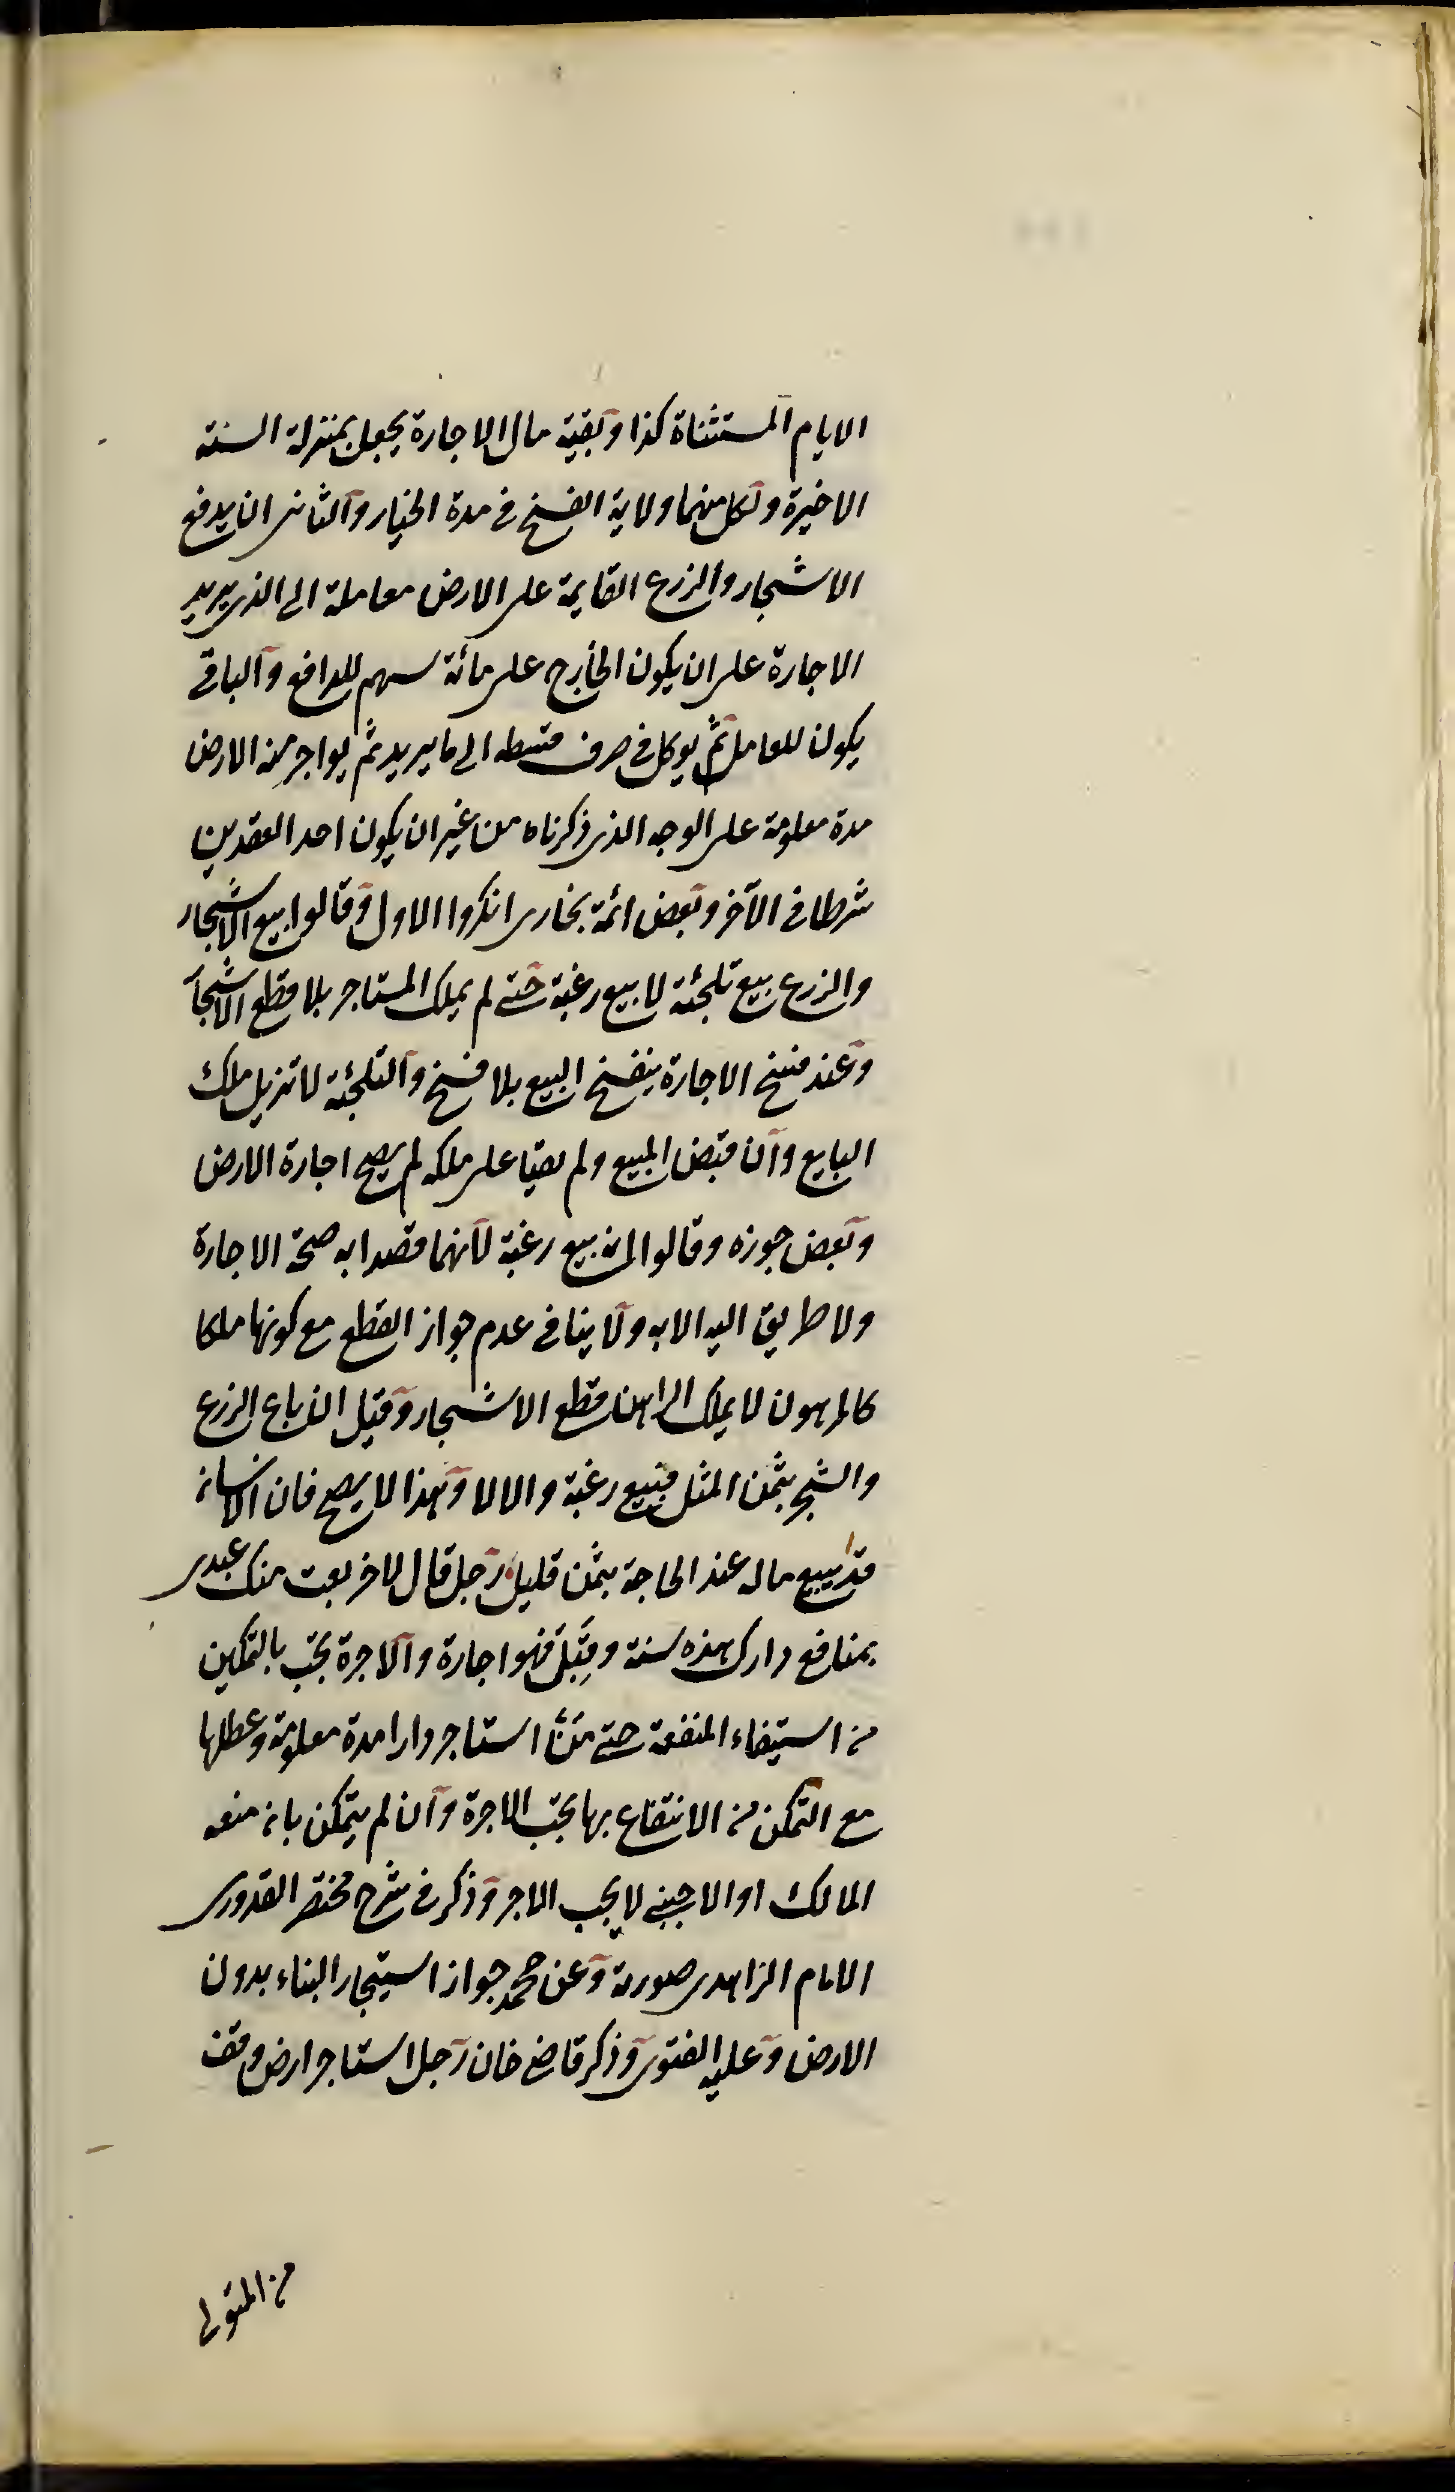 الايام المستثناة كذا وبقية مال الاجارة يجعل بمنزلة السنة
الاخيرة ولكل منهما ولاية الفسخ في مدة الخيار والثاني ان يدفع
الاشجار والزرع القايمة على الارض معاملة الى الذي يريد
الاجارة على ان يكون الخارج على مائة سهم للدافع والباقي
يكون للعامل ثم يوكل في صرف قسطه الى ما يريد ثم يواجر منه الارض
مدة معلومة على الوجه الذي ذكرناه من غير ان يكون احد العقدين
شرطا في الآخر وبعض ائمة بخارى انكروا الاول وقالوا بيع الاشجار
والزرع بيع تلجئة لا بيع رغبة حتى لم يملك المستاجر بلا قطع الاشجار
وعند فسخ الاجارة ينفسخ البيع بلا فسخ والتلجئة لا تزيل ملك
البايع وان قبض المبيع ولم بقيا على ملكه لم يصح اجارة الارض
وبعض جوزه وقالوا انه بيع رغبة لانهما قصدا به صحة الاجارة
ولا طريق اليه الا به ولا ينافي عدم جواز القطع مع كونها ملكا
كالمرهون لا يملك الراهن قطع الاشجار وقيل ان باع الزرع
والشجر بثمن المثل فبيع رغبة والا لا وهذا لا يصح فان الانسان
قد يبيع ماله عند الحاجة بثمن قليل رجل قال لاخر بعت منك عبدي
بمنافع دارك هذه سنة وقبل فهو اجارة والاجرة تجب بالتمكين
من استيفاء المنفعة حتى من استاجر دارا مدة معلومة وعطلها
مع التمكن من الانتفاع بها تجب الاجرة وان لم يتمكن بان منعه
المالك او الاجنبي لا يجب الاجر وذكر في شرح مختصر القدوري
الامام الزاهدي صورته وعن محمد جواز استيجار البناء بدون
الارض وعليه الفتوى وذكر قاضي خان رجل استاجر ارض وقف
من المتولي